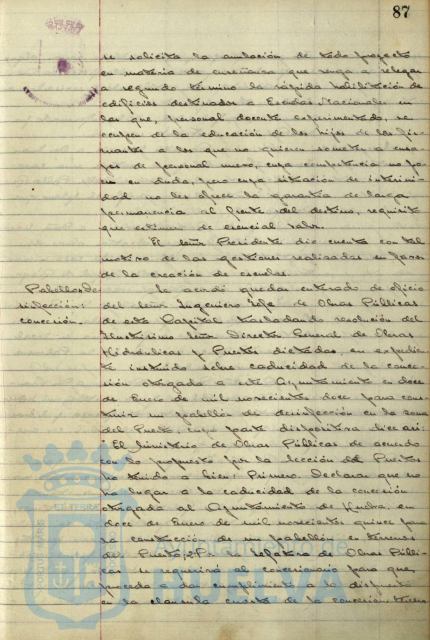 87
se solicita la anulación de todo proyecto
en materia de enseñanza que venga a relegar
a segundo término la rápida habilitación de
edificios destinados a Escuelas Nacionales en
las que, personal docente experimentado, se
ocupen de la educación de los hijos de los fir-
mantes a los que no quieren someter a ensa-
yos de personal nuevo, cuya competencia no po-
nen en duda, pero cuya situación de interini-
dad no les ofrece la garantía de larga
permanencia al frente del destino, requisito
que estiman de esencial valor.
El señor Presidente dio cuenta con tal
motivo de las gestiones realizadas en favor
de la creación de escuelas.
Pabellón de
sinfección:
concesión.
Se acordó quedar enterado de oficio
del Señor Ingeniero Jefe de Obras Públicas
de esta Capital trasladando resolución del
Ilustrísimo Señor Director General de Obras
Hidráulicas y Puertos dictada, en expedien-
te instruido sobre caducidad de la conce-
sión otorgada a este Ayuntamiento en doce
de Enero de mil novecientos doce para cons-
truir un pabellón de desinfección en la zona
del Puerto, cuya parte dispositiva dice así:
"El Ministerio de Obras Públicas de acuerdo
con lo propuesto por la Sección de Puertos
ha tenido a bien: Primero. Declarar que no
ha lugar a la caducidad de la concesión
otorgada al Ayuntamiento de Huelva en
doce de Enero de mil novecientos quince para
la construcción de un pabellón en terrenos
del Puerto; 2º. Por la Jefatura de Obras Públi-
cas se requerirá al concesionario para que,
proceda a dar cumplimiento a lo dispuesto
en la cláusula cuarta de la concesión